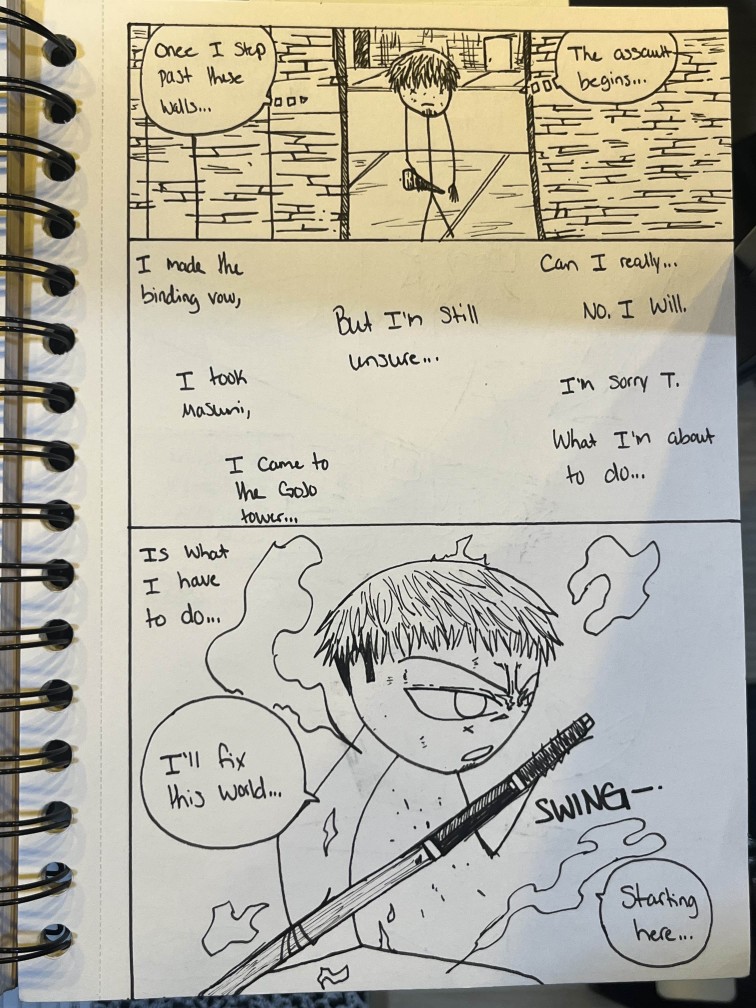 Once I step
past these
walls...
The assault
begins...
I made the
binding vow,
I took
Masumi,
I came to
the Gojo
tower...
But I'm still
unsure...
Can I really...
No. I Will.
I'm sorry T.
What I'm about
to do...
Is what
I have
to do...
I'll fix
this world...
SWING-
Starting
here...